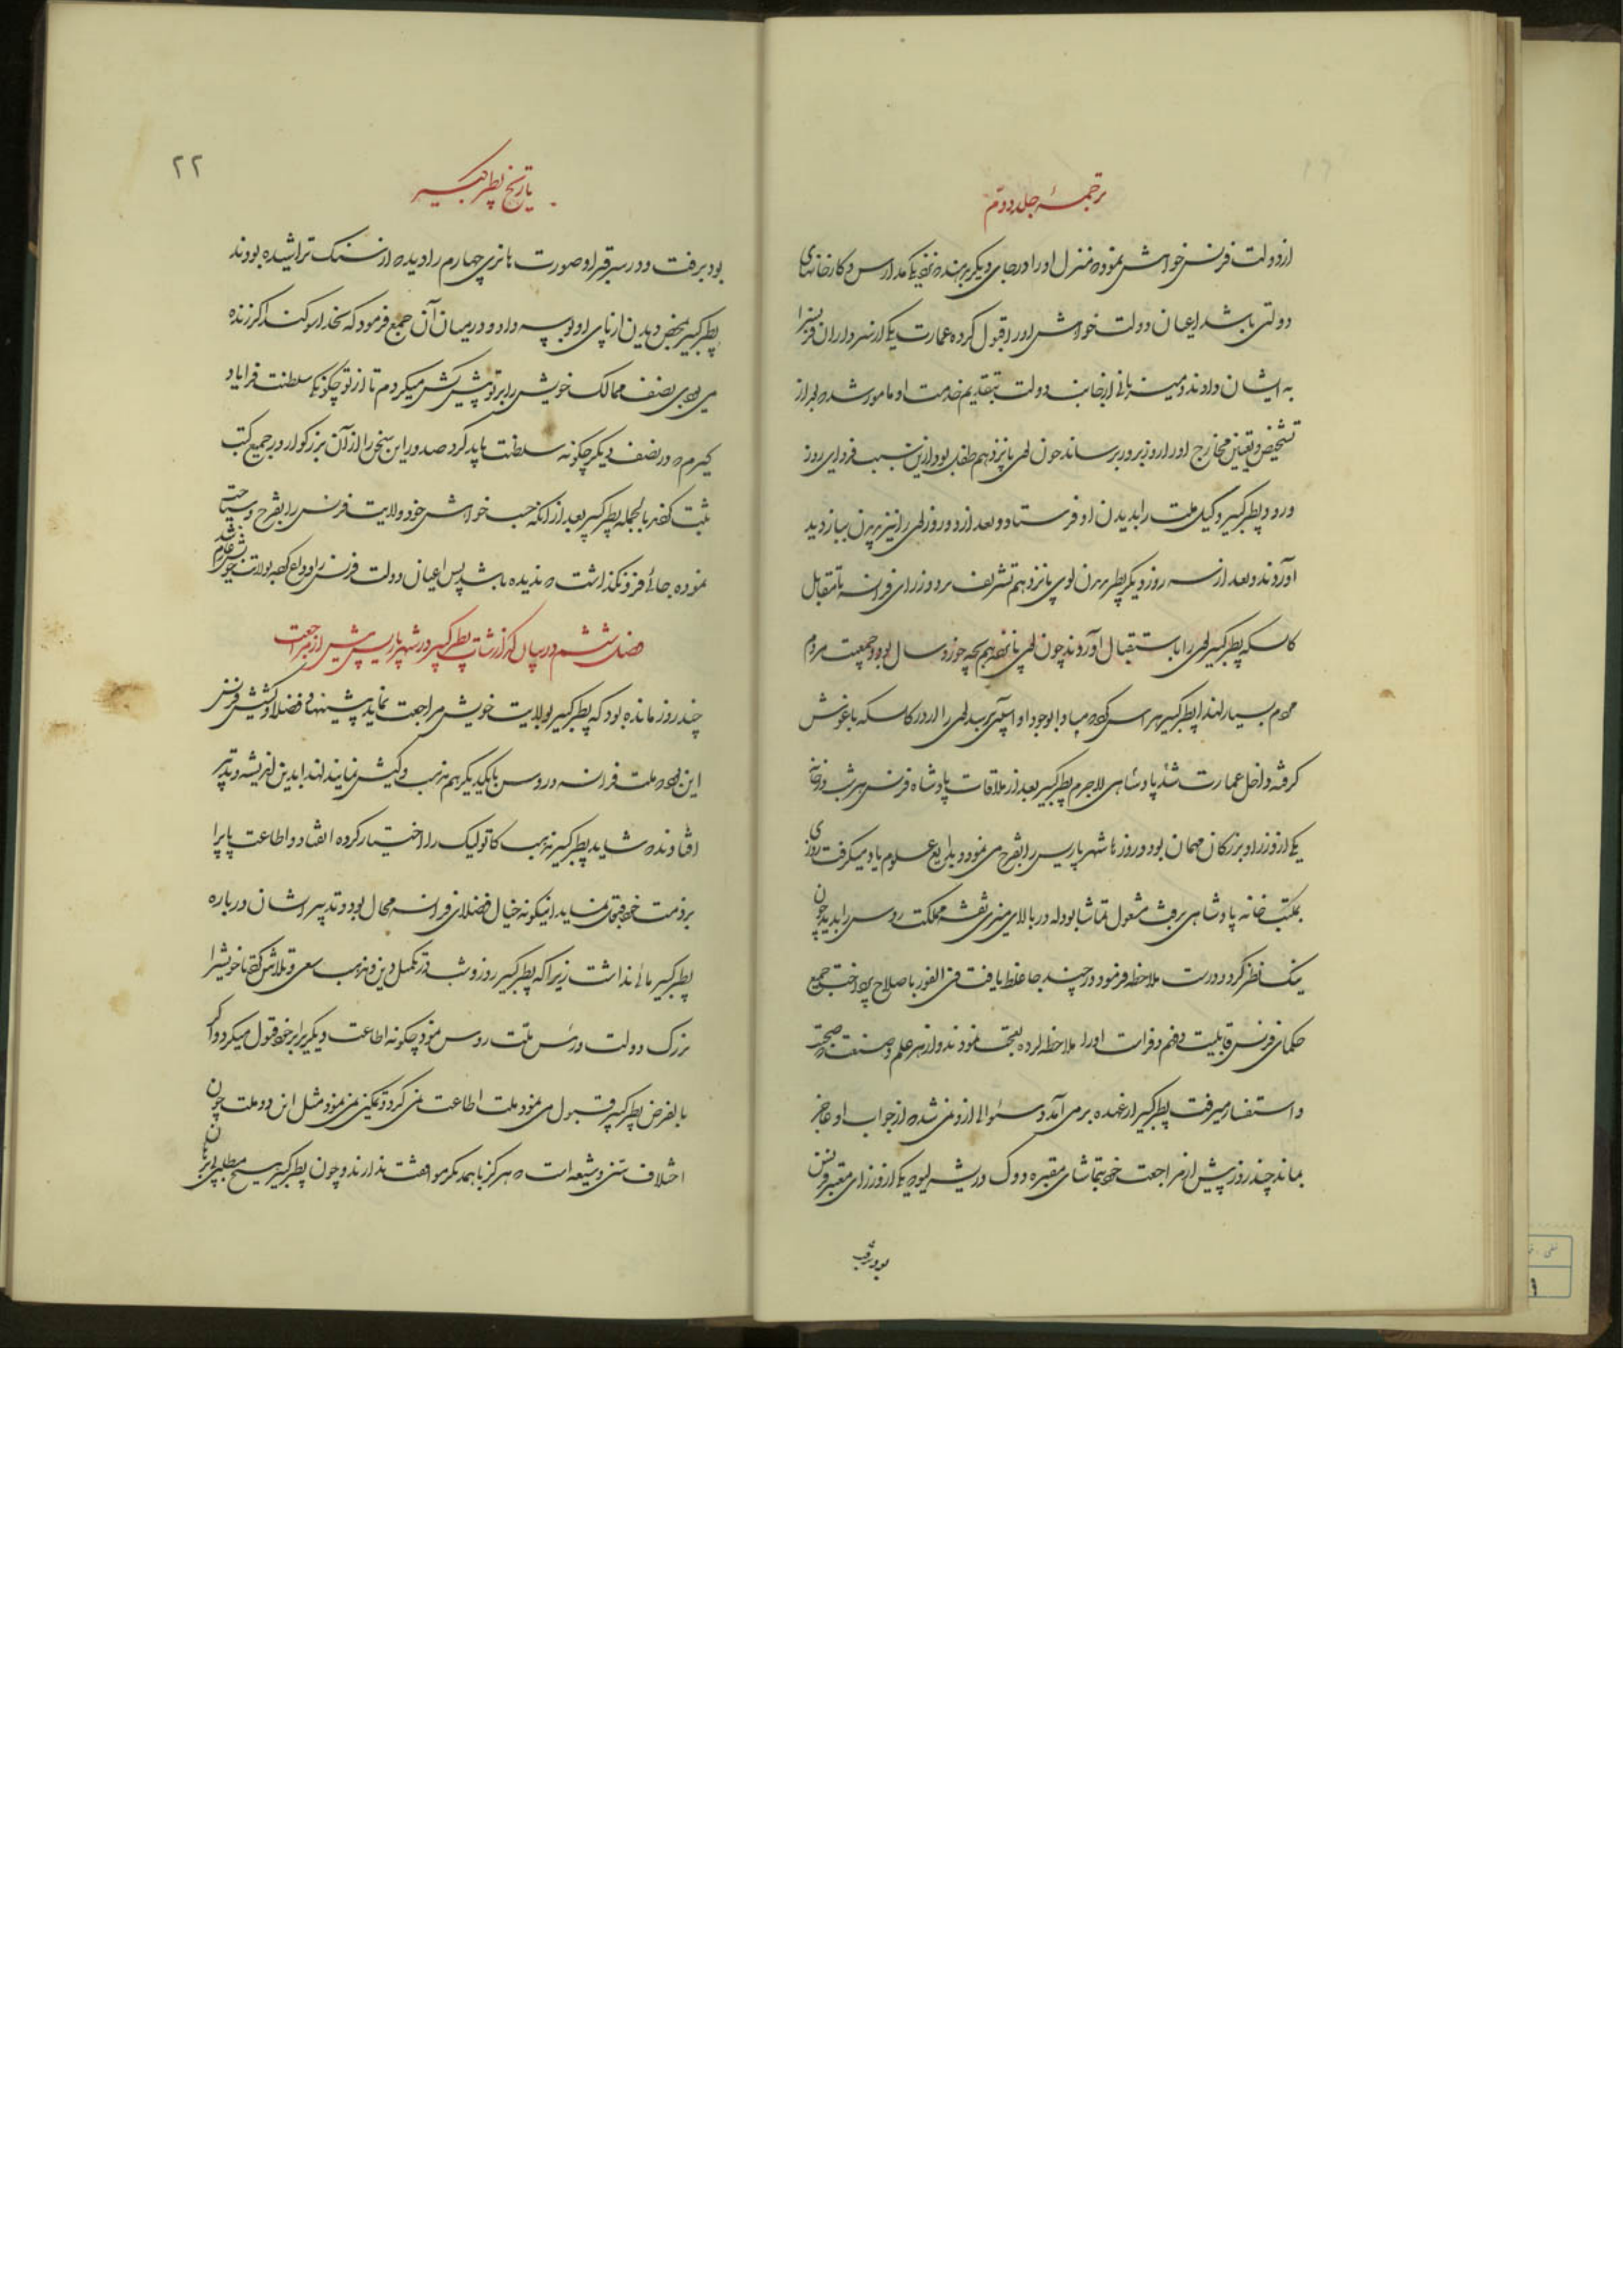 ترجمهٔ جلد دویم
از دولت فرنس خواهش نموده منزل اورا در جای دیگر بدهند نزدیک مدارس و کارخانهای
دولتی باشد اعیان دولت خواهش اورا قبول کرده عمارت یکی از سرداران فرنس را
به ایشان دادند و میزبانی از جانب دولت بتقدیم خدمت او مامور شده بعد از
تشخیص و تعیین مخارج اورا روز بروز برساند چون لوی پانزدهم طفل بود از این سبب فردای روز
ورود پطر کبیر وکیل ملت را بدیدن او فرستاد و بعد از دو روز لوی را نیز بردن ببازدید
آوردند و بعد از سه روز دیگر پطر بدیدن لوی پانزدهم تشریف برد وزرای فرانسه تا مقابل
کالسکه پطر کبیر لوی را باستقبال آوردند چون لوی پانزدهم بچه خورد سال بود و جمعیت مردم
هم بسیار لهذا پطر کبیر هراس کرده مبادا بوجود او آسیبی برسد لوی را از در کالسکه باغوش
گرفته داخل عمارت شد پادشاهی لاجرم پطر کبیر بعد از ملاقات پادشاه فرنس هر شب در خانه
یکی از وزرا و بزرگان مهمان بود و روزها شهر پاریس را تفرج می نمود و بدایع علوم یاد میگرفت روزی
بمکتب خانه پادشاهی برفت مشغول تماشا بود که در بالای میزی نقشه مملکت روس را بدید چون
نیک نظر کرد و درست ملاحظه فرمود در چند جا غلط یافت فی الفور باصلاح پرداخت جمیع
حکمای فرنس قابلیت و فهم و فراست اورا ملاحظه کرده تعجب نمودند و از هر علم و صنعت که صحبت
و استفسار میرفت پطر کبیر از عهده بر می آمد و سئوالی از او نمی شد که از جواب او عاجز
بماند چند روز پیش از مراجعت خود بتماشای مقبره دوک دریشلیو که یکی از وزرای معتبر فرنس
بود برفت
تاریخ پطر کبیر
۲۲
بود برفت و در سر قبر او صورت هانری چهارم را دیده از سنگ تراشیده بودند
پطر کبیر بمحض دیدن از پای او بوسه داد و در میان آن جمع فرمود که بخدا سوگند اگر زنده
می بودی نصف ممالک خویش را بر تو پیش کش میکردم تا از تو چگونگی سلطنت فرا یاد
گیرم که در نصف دیگر چگونه سلطنت باید کرد صدور این سخن را از آن بزرگوار در جمیع کتب
ثبت کرده بالجمله پطر کبیر بعد از آنکه حسب خواهش خود ولایت فرنس را تفرج و سیاحت
نموده جائی فرو نگذاشت که ندیده باشد پس اعیان دولت فرنس را وداع کرده بولایت خویش عازم شد
فصل ششم در بیان گذارشات پطر کبیر در شهر پاریس پیش از مراجعت
چند روز مانده بود که پطر کبیر بولایت خویش مراجعت نماید پیشنهاد فضلا و کشیش فرنس
این بود که ملت فرانسه و روس با یکدیگر هم مذهب و کیش نمایند لهذا بدین اندیشه و تدبیر
افتادند که شاید پطر کبیر مذهب کاتولیک را اختیار کرده انقیاد و اطاعت پاپ را
بر ذمت خود متحتم نماید اینگونه خیال فضلای فرانسه محال بود و تدبیر ایشان درباره
پطر کبیر مآلی نداشت زیرا که پطر کبیر روز و شب در تکمیل دین و مذهب سعی و تلاش کرده تا خویش را
بزرگ دولت و رئیس ملت روس نمود چگونه اطاعت دیگری را بر خود قبول میکرد و اگر
بالفرض پطر کبیر قبول می نمود ملت اطاعت نمی کرد و تمکین نمی نمود مثل این دو ملت چون
اختلاف سنی و شیعه است که هرگز با همدیگر موافقت ندارند و چون پطر کبیر هیچ مطلبی را